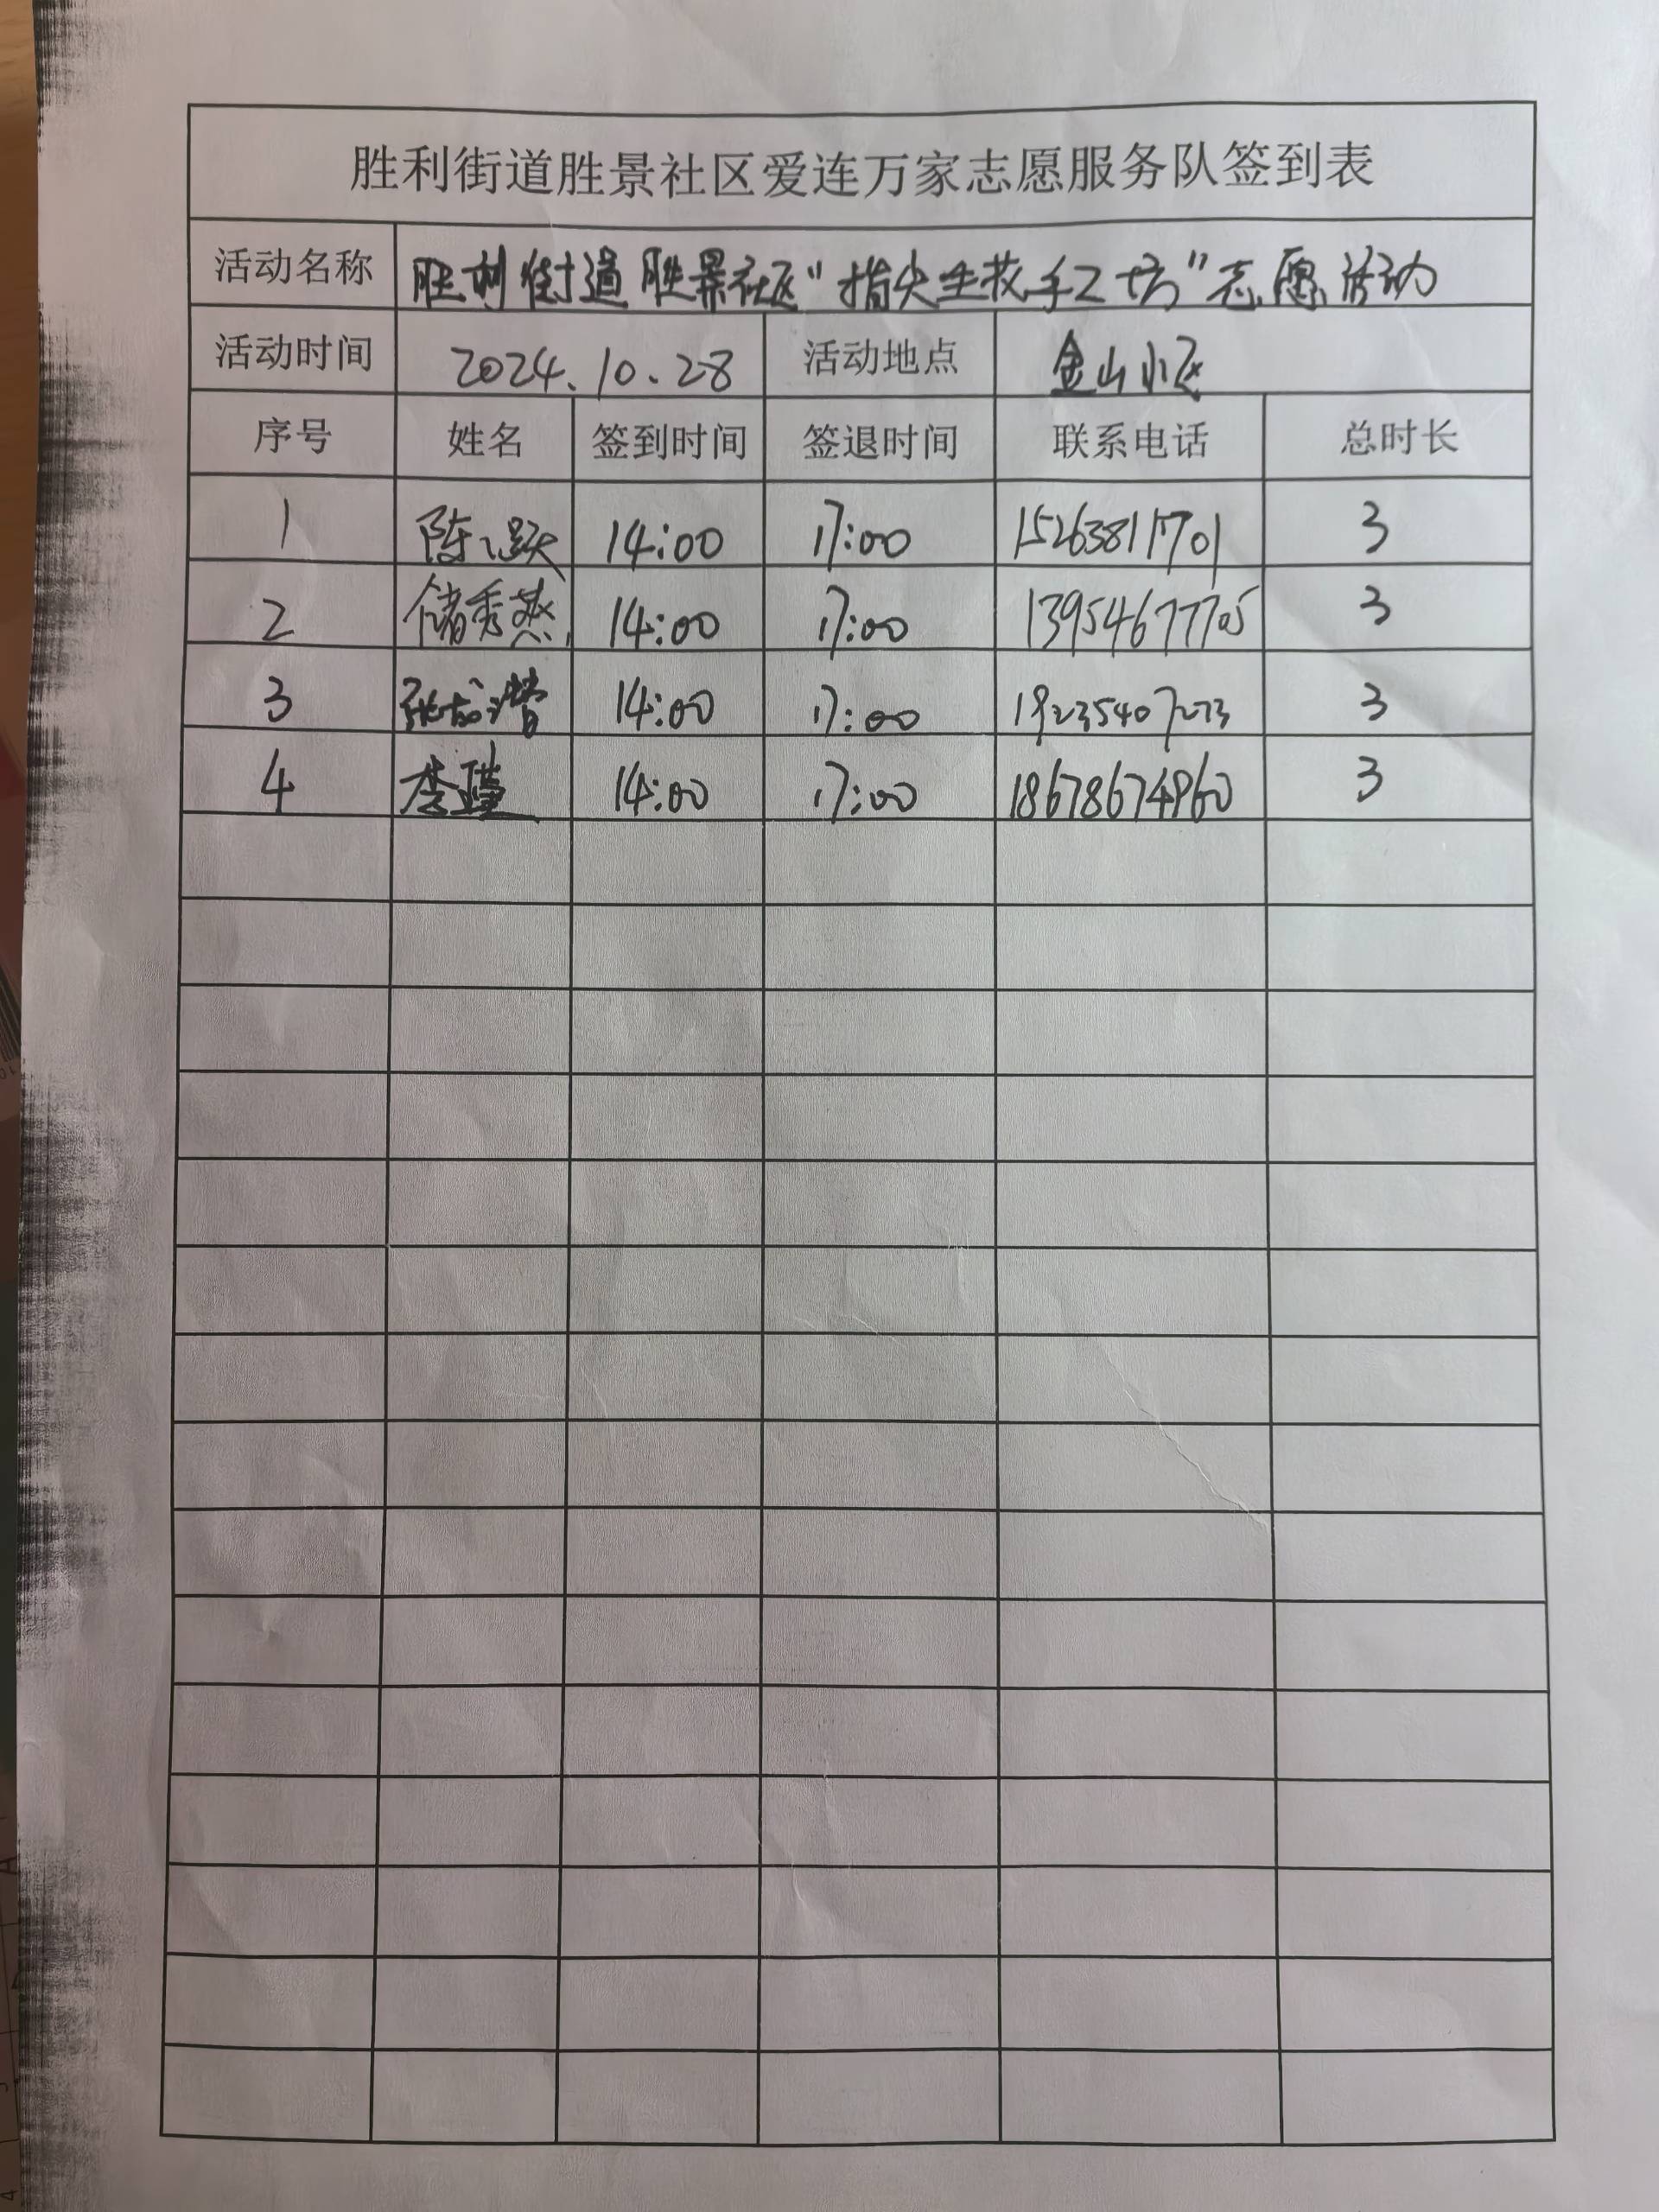 胜利街道胜景社区爱连万家志愿服务队签到表
活动名称 胜利街道胜景社区“指尖生花手工坊”志愿活动
活动时间 2024.10.28 活动地点 金山小区
序号 姓名 签到时间 签退时间 联系电话 总时长
1 陈 跃 14:00 17:00 15263811701 3
2 储秀燕 14:00 17:00 13954677705 3
3 张 14:00 17:00 3
4 李瑾 14:00 17:00 18678674960 3